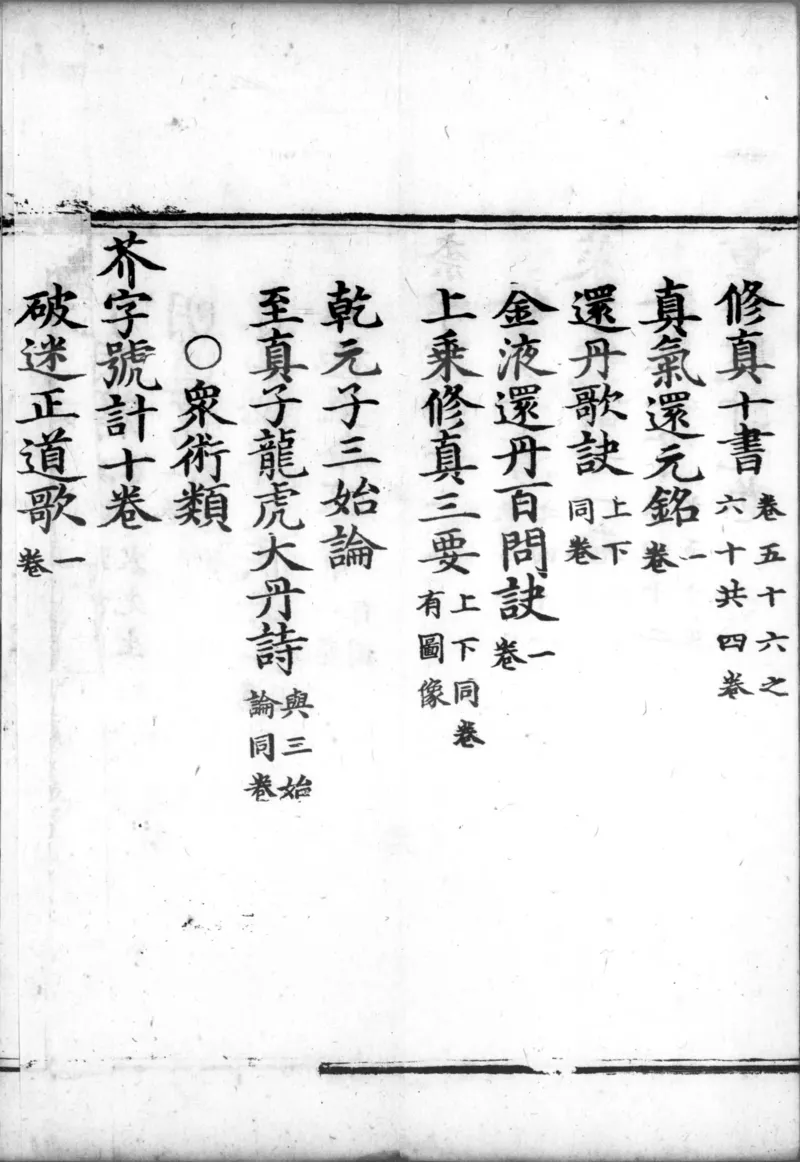 修真十書卷五十六之六十共四卷
真氣還元銘一卷
還丹歌訣上下同卷
金液還丹百問訣一卷
上乗修真三要上下同卷有圖像
乾元子三始論
至真子龍虎大丹詩與三始論同卷
〇衆術類
芥字號計十卷
破迷正道歌一卷